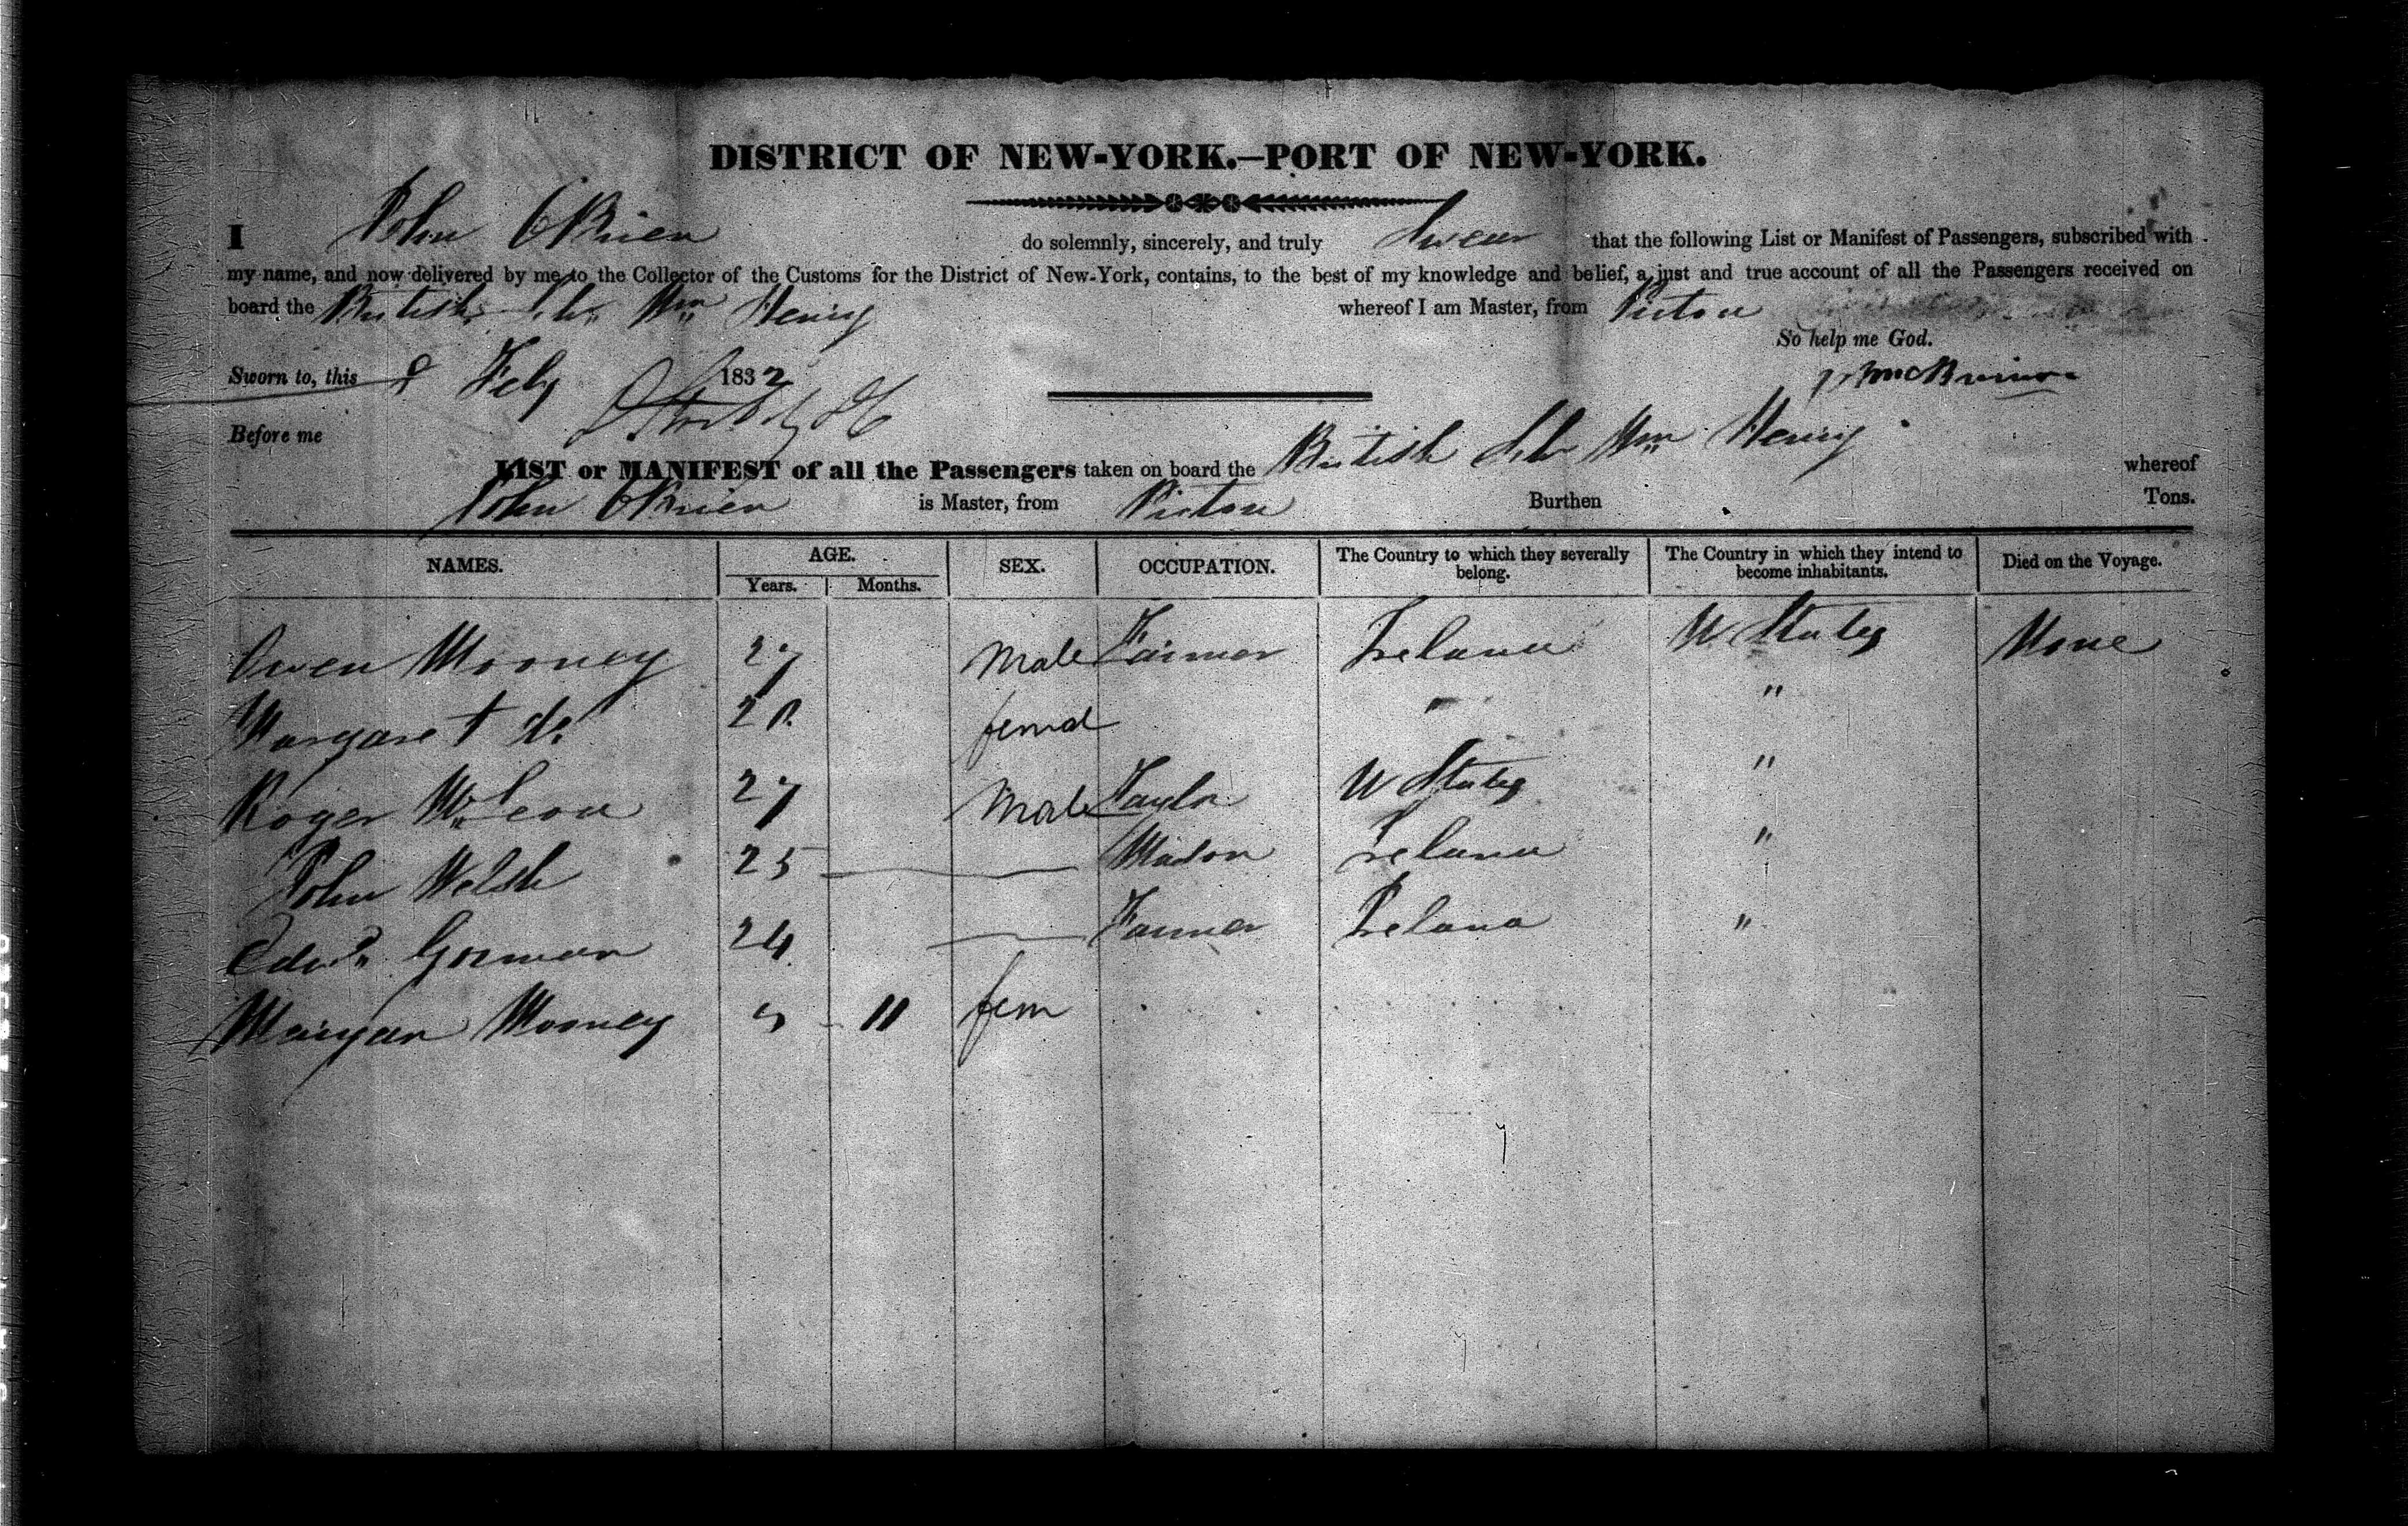 DISTRICT OF NEW-YORK.—PORT OF NEW-YORK.
I John OBrien do solemnly, sincerely, and truly Swear that the following List or Manifest of Passengers, subscribed with
my name, and now delivered by me to the Collector of the Customs for the District of New-York, contains, to the best of my knowledge and belief, a just and true account of all the Passengers received on
board the British Schr Wm Henry whereof I am Master, from Picton
So help me God.
Sworn to, this Feby 1832
Before me
LIST or MANIFEST of all the Passengers taken on board the British Schr Wm Henry whereof
John OBrien is Master, from Picton Burthen Tons.
NAMES. AGE. SEX. OCCUPATION. The Country to which they severally belong. The Country in which they intend to become inhabitants. Died on the Voyage.
Years. Months.
Owen Mooney 27 Male Farmer Ireland U States None
Margaret do 20 femal " "
Roger 27 Male Taylor U States "
John Welsh 25 Mason Ireland "
Edwd Gorman 24 Farmer Ireland "
Mooney 11 fem